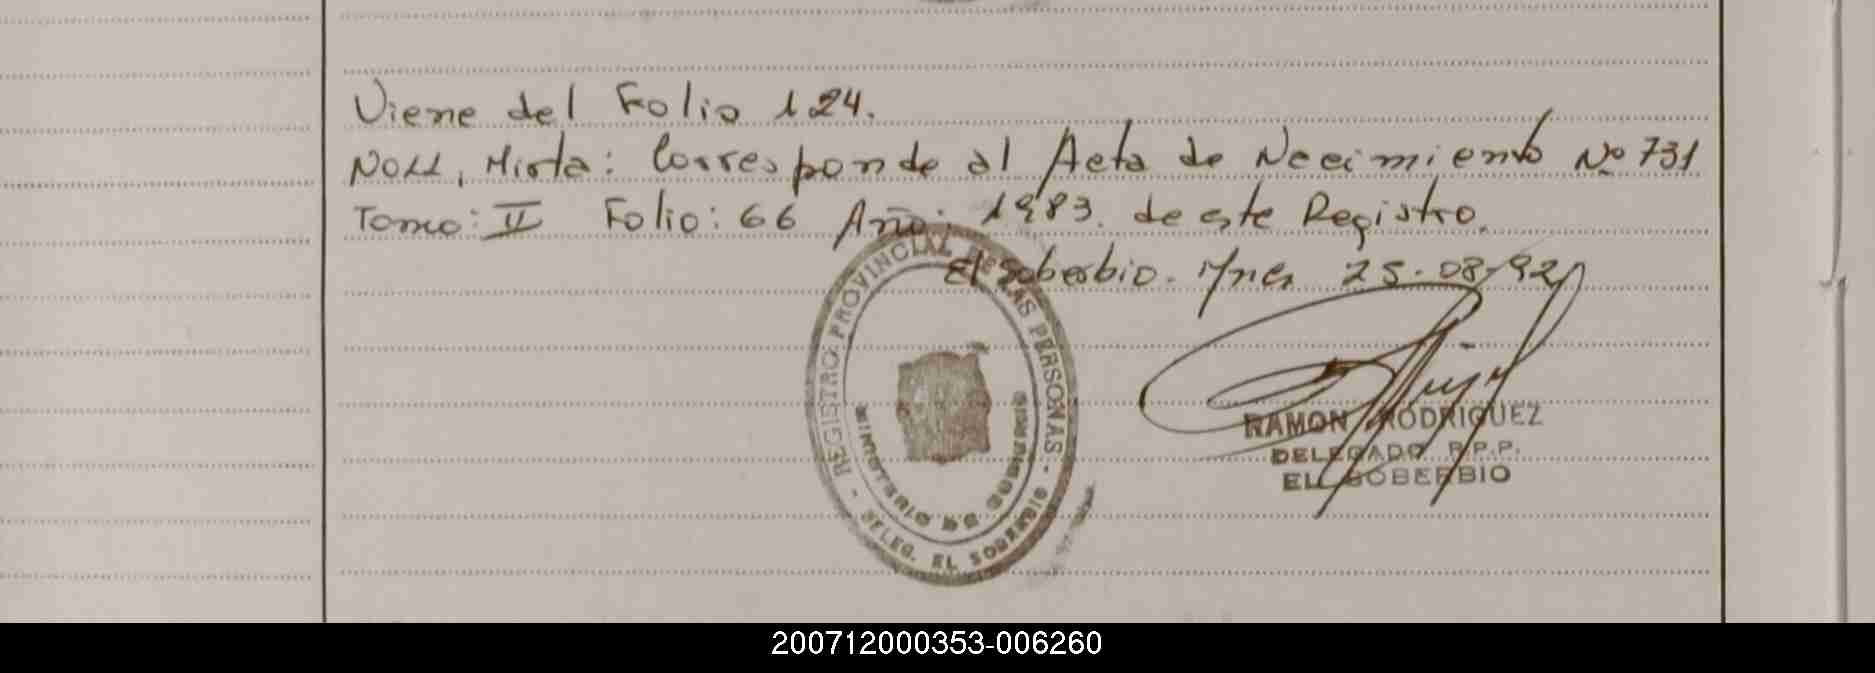 Viene del Folio 124.
Noll, Mirta: Corresponde al Acta de Nacimiento Nº 731
Tomo: II Folio: 66 Año: 1983. de este Registro.
El Soberbio. Mnes 25-08-92
REGISTRO PROVINCIAL DE LAS PERSONAS
MINISTERIO DE GOBIERNO
DELEG. EL SOBERBIO
RAMON RODRIGUEZ
DELEGADO R.P.P.
EL SOBERBIO
200712000353-006260